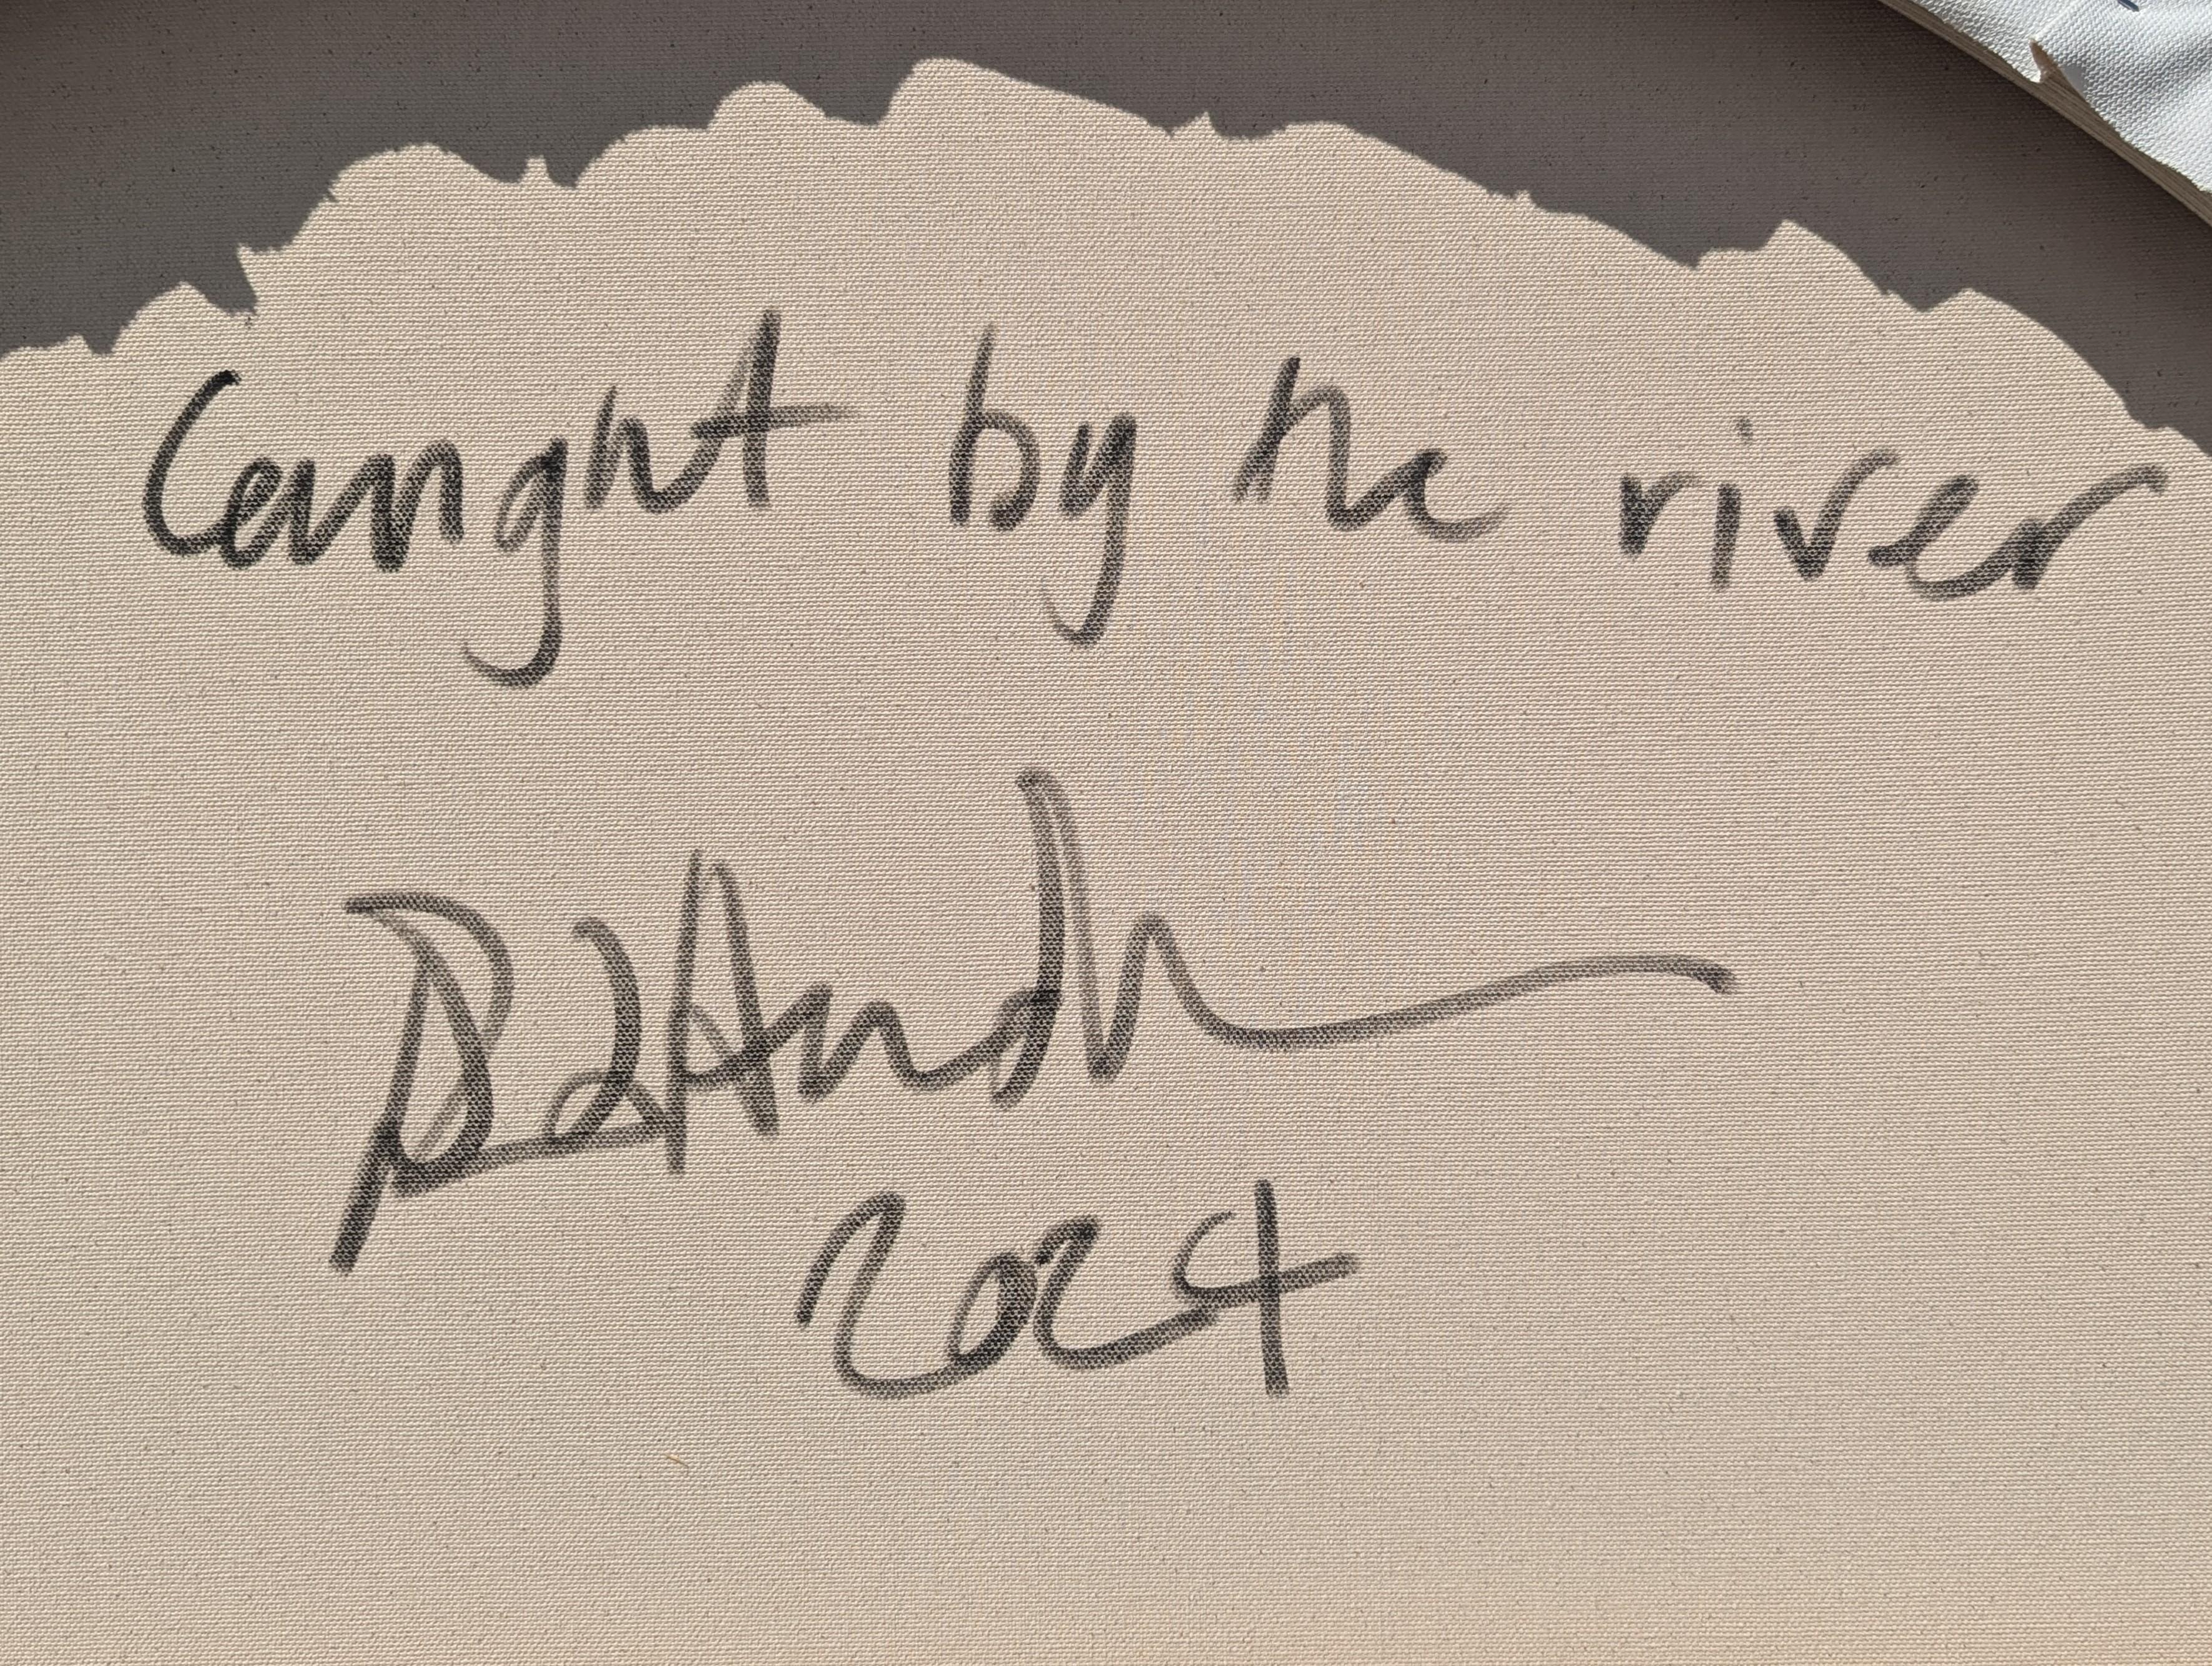 Caught by the river
2024